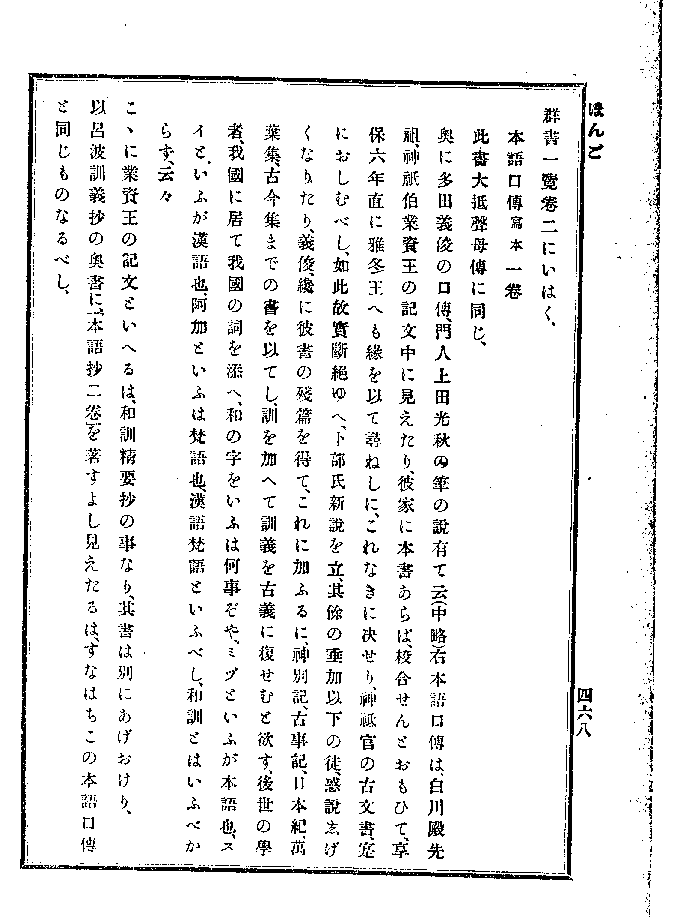 ほんご
四六八
群書一覽卷二にいはく、
本語口傳寫本一卷
此書大抵聲母傳に同じ、
奧に多田義俊の口傳、門人上田光秋の筆の說有て云(中略)右本語口傳は、白川殿先
祖、神祇伯業資王の記文中に見えたり、彼家に本書あらば、校合せんとおもひて、享
保六年直に雅冬王へも緣を以て尋ねしに、これなきに決せり、神祇官の古文書、寔
におしむべし、如此故實斷絕ゆへ、卜部氏新說を立、其餘の垂加以下の徒、惑說ゑげ
くなりたり、義俊、纔に彼書の殘篇を得て、これに加ふるに、神別記、古事記、日本紀、萬
葉集、古今集までの書を以てし、訓を加へて訓義を古義に復せむと欲す、後世の學
者、我國に居て我國の詞を添へ、和の字をいふは何事ぞや、ミヅといふが本語也、ス
イと、いふが漢語也、阿加といふは梵語也、漢語梵語といふべし、和訓とはいふべか
らず、云々
こゝに業資王の記文といへるは、和訓精要抄の事なり、其書は別にあげおけり、
以呂波訓義抄の奧書に、「本語抄二卷」を著すよし見えたるは、すなはちこの本語口傳
と同じものなるべし、